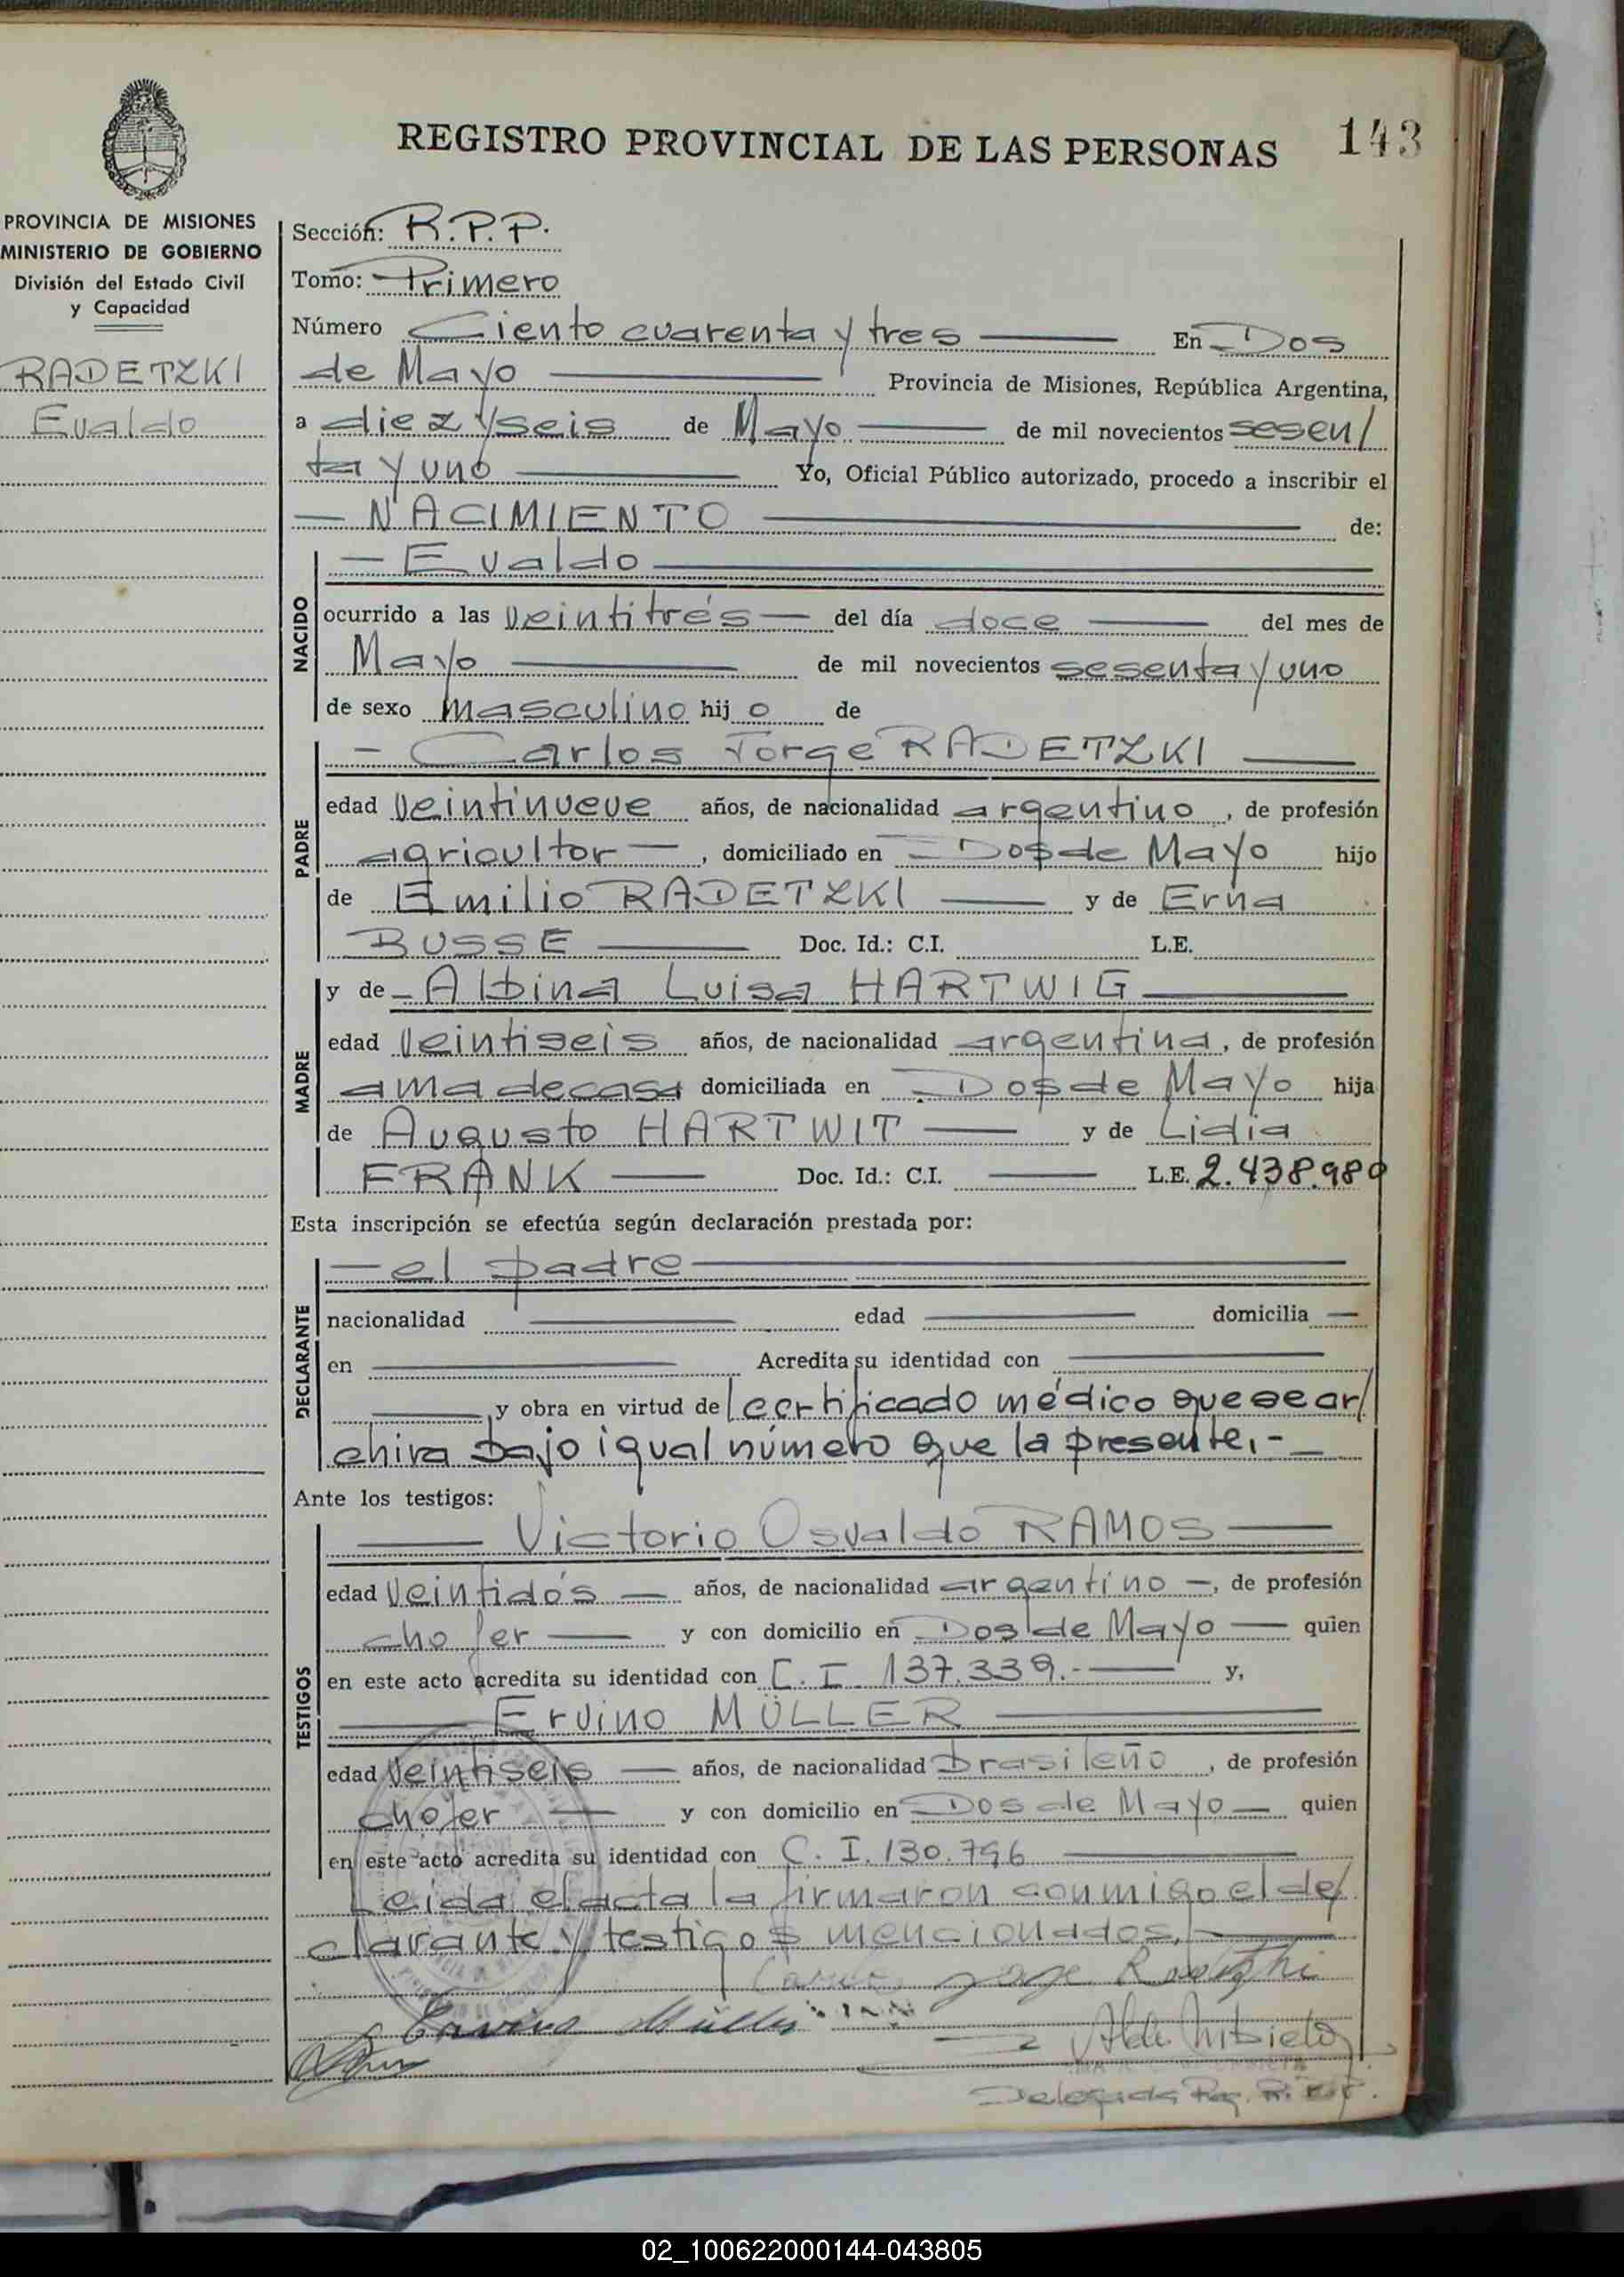 REGISTRO PROVINCIAL DE LAS PERSONAS 143
PROVINCIA DE MISIONES
MINISTERIO DE GOBIERNO
División del Estado Civil
y Capacidad
RADETZKI
Evaldo
Sección: R.P.P.
Tomo: Primero
Número Ciento cuarenta y tres En Dos
de Mayo Provincia de Misiones, República Argentina,
a diez y seis de Mayo de mil novecientos sesen/
ta y uno Yo, Oficial Público autorizado, procedo a inscribir el
NACIMIENTO de:
NACIDO
Evaldo
ocurrido a las veintitrés del día doce del mes de
Mayo de mil novecientos sesenta y uno
de sexo masculino hijo de
PADRE
Carlos Jorge RADETZKI
edad veintinueve años, de nacionalidad argentino, de profesión
agricultor, domiciliado en Dos de Mayo hijo
de Emilio RADETZKI y de Erna
BUSSE Doc. Id.: C.I. L.E.
MADRE
y de Albina Luisa HARTWIG
edad veintiseis años, de nacionalidad argentina, de profesión
ama de casa domiciliada en Dos de Mayo hija
de Augusto HARTWIT y de Lidia
FRANK Doc. Id.: C.I. L.E. 2.438.980
Esta inscripción se efectúa según declaración prestada por:
DECLARANTE
el padre
nacionalidad edad domicilia
en Acredita su identidad con
y obra en virtud de certificado médico que se ar/
chiva bajo igual número que la presente.-
Ante los testigos:
TESTIGOS
Victorio Osvaldo RAMOS
edad veintidós años, de nacionalidad argentino, de profesión
chofer y con domicilio en Dos de Mayo quien
en este acto acredita su identidad con C.I. 137.339.- y,
Ervino MÜLLER
edad veintiseis años, de nacionalidad brasileño, de profesión
chofer y con domicilio en Dos de Mayo quien
en este acto acredita su identidad con C.I. 130.796
Leida el acta la firmaron conmigo el de/
clarante y testigos mencionados.
Carlos Jorge Radetzki
Ervino Müller
Delegada Reg. R.P.P.
02_100622000144-043805